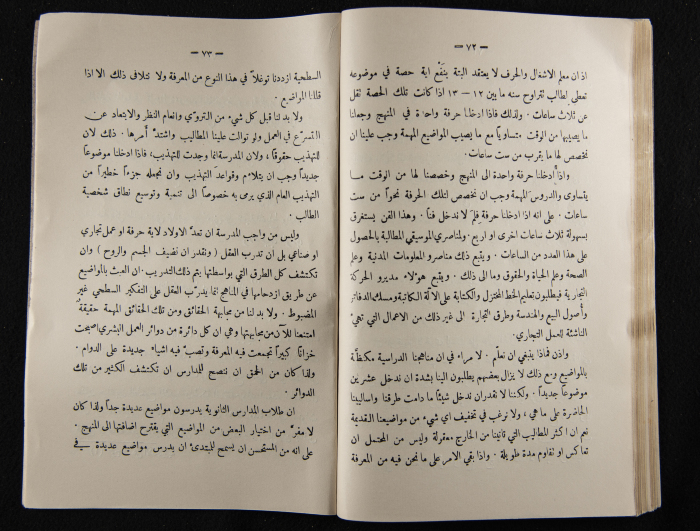 — ٧٢ —
اذ ان معلم الاشغال والحرف لا يعتقد البتة بنفع اية حصة في موضوعه
تعطى لطالب تتراوح سنه ما بين ١٢ — ١٣ اذا كانت تلك الحصة تقل
عن ثلاث ساعات . ولذلك فاذا ادخلنا حرفة واحدة في المنهج وجعلنا
ما يصيبها من الوقت متساوياً مع ما يصيب المواضيع المهمة وجب علينا ان
نخصص لها ما يقرب من ست ساعات .
واذا أدخلنا حرفة واحدة الى المنهج وخصصنا لها من الوقت مـا
يتساوى والدروس المهمة وجب ان نخصص لتلك الحرفة نحواً من ست
ساعات . على انه اذا ادخلنا حرفة فلِمَ لا ندخل فناً . وهذا الفن يستغرق
بسهولة ثلاث ساعات اخرى او اربع . ولمناصري الموسيقى المطالبة بالحصول
على هذا العدد من الساعات . ويتبع ذلك مناصرو المعلومات المدنية وعلم
الصحة وعلم الحياة والحقوق وما الى ذلك . ويتبع هؤلاء مديرو الحركة
التجارية فيطلبون تعليم الخط المختزل والكتابة على الآلة الكاتبة ومسك الدفاتر
وأصول البيع والهندسة وطرق التجارة الى غير ذلك من الاعمال التي تهيء
الناشئة للعمل التجاري .
واذن فماذا ينبغي ان نعلّم . لا مراء في ان مناهجنا الدراسية مكتظة
بالمواضيع ومع ذلك لا يزال بعضهم يطلبون الينا بشدة ان ندخل عشرين
موضوعاً جديداً . ولكننا لا نقدر ان ندخل شيئاً ما دامت طرقنا واساليبنا
الحاضرة على ما هي ، ولا نرغب في تخفيف اي شيء من مواضيعنا القديمة
نعم ان اكثر المطاليب التي تأتينا من الخارج معقولة وليس من المحتمل ان
تعاكس او تقاوم مدة طويلة . واذا بقي الامر على ما نحن فيه من المعرفة
— ٧٣ —
السطحية ازددنا توغلاً في هذا النوع من المعرفة ولا نتلافى ذلك الا اذا
قللنا المواضيع .
ولا بد لنا قبل كل شيء من التروّي وانعام النظر والابتعاد عن
التسرع في العمل ولو توالت علينا المطاليب واشتدّ أمرها . ذلك لان
للتهذيب حقوقاً ، ولان المدرسة انما وجدت للتهذيب، فاذا ادخلنا موضوعاً
جديداً وجب ان يتلاءم وقواعد التهذيب وان نجعله جزءاً خطيراً من
التهذيب العام الذي يرمي به خصوصاً الى تنمية وتوسيع نطاق شخصية
الطالب .
وليس من واجب المدرسة ان تعدّ الاولاد لاية حرفة او عمل تجاري
او صناعي بل ان تدرب العقل ( ونقدر ان نضيف الجسم والروح ) وان
تكتشف كل الطرق التي بواسطتها يتم ذلك التدريب . ان العبث بالمواضيع
عن طريق ازدحامها في المناهج انما يدرب العقل على التفكير السطحي غير
المضبوط . ولا بد لنا من مجابهة الحقائق ومن تلك الحقائق المهمة حقيقة
امتنعنا للآن من مجابهتها وهي ان كل دائرة من دوائر العمل البشري اصبحت
خزاناً كبيراً تجمعت فيه المعرفة وتصبّ فيه اشياء جديدة على الدوام .
ولذا كان من الحمق ان ننصح للمدارس ان تكتشف الكثير من تلك
الدوائر .
ان طلاب المدارس الثانوية يدرسون مواضيع عديدة جداً ولذا كان
لا مفرّ من اختيار البعض من المواضيع التي يقترح اضافتها الى المنهج .
على انه من المستحسن ان يسمح للمبتدئ ان يدرس مواضيع عديدة في